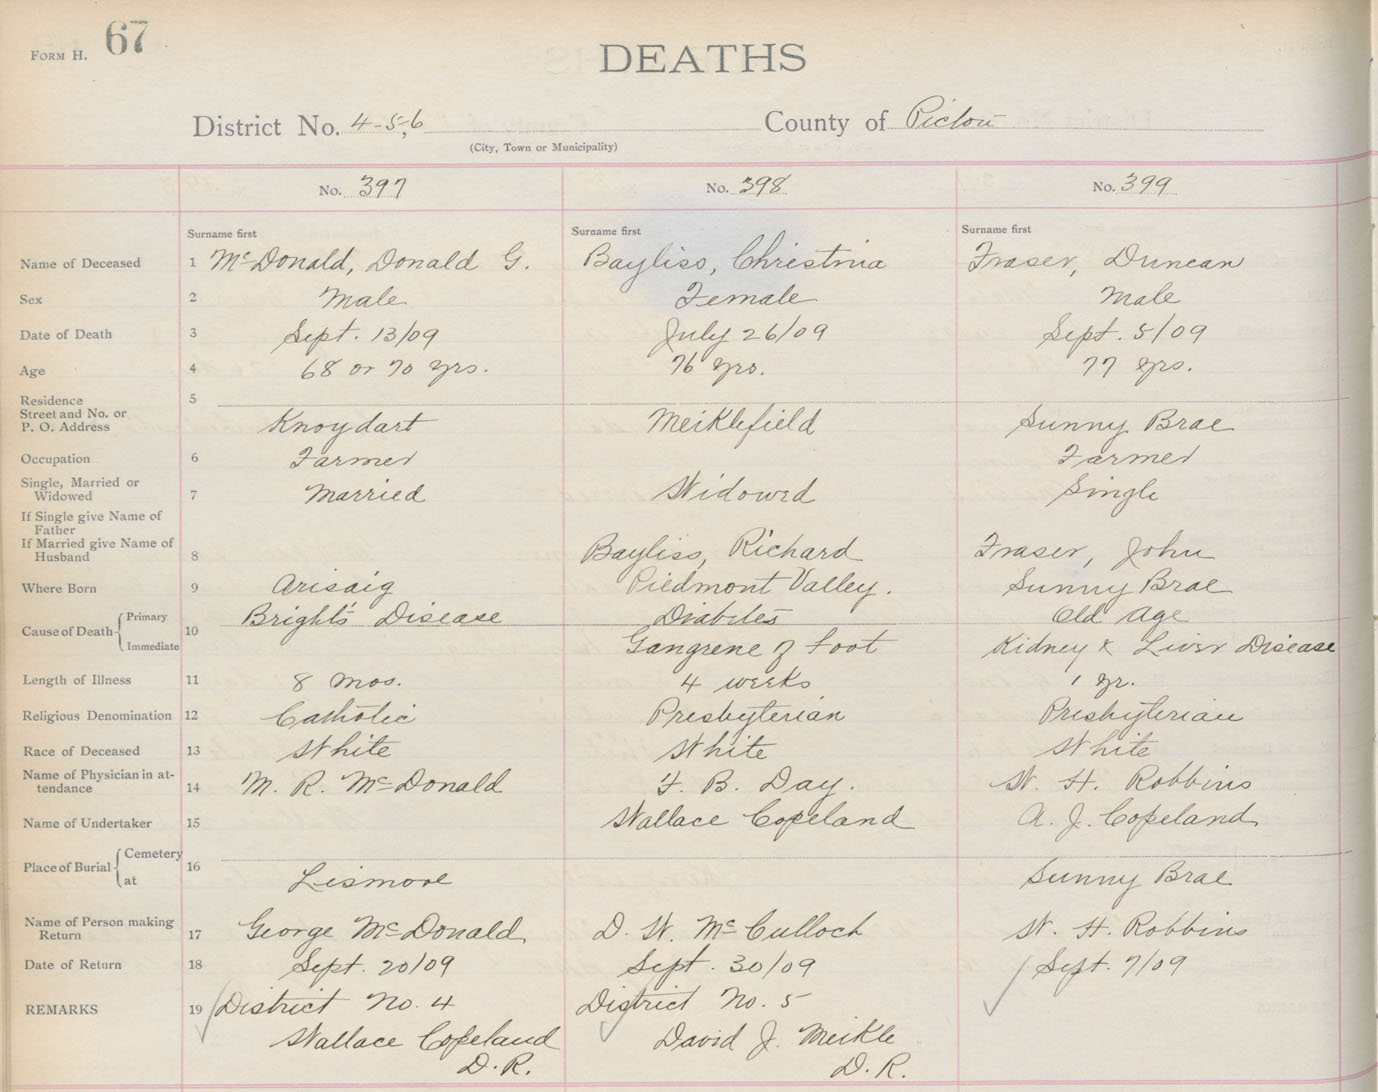 FORM H. 67
DEATHS
District No. 4-5,6 County of Pictou
(City, Town or Municipality)
No. 397 No. 398 No. 399
Surname first Surname first Surname first
Name of Deceased 1 McDonald, Donald G. Bayliss, Christnia Fraser, Duncan
Sex 2 Male Female Male
Date of Death 3 Sept. 13/09 July 26/09 Sept. 5/09
Age 4 68 or 70 yrs. 76 yrs. 77 yrs.
Residence 5
Street and No. or
P. O. Address Knoydart Meiklefield Sunny Brae
Occupation 6 Farmer Farmer
Single, Married or
Widowed 7 Married Widowed Single
If Single give Name of
Father
If Married give Name of
Husband 8 Bayliss, Richard Fraser, John
Where Born 9 Arisaig Piedmont Valley. Sunny Brae
Cause of Death Primary 10 Bright's Disease Diabetes Old Age
Immediate Gangrene of foot Kidney & Liver Disease
Length of Illness 11 8 mos. 4 weeks 1 yr.
Religious Denomination 12 Catholic Presbyterian Presbyterian
Race of Deceased 13 White White White
Name of Physician in at-
tendance 14 M. R. McDonald F. B. Day. W. H. Robbins
Name of Undertaker 15 Wallace Copeland A. J. Copeland
Place of Burial Cemetery 16
at Lismore Sunny Brae
Name of Person making
Return 17 George McDonald D. W. McCulloch W. H. Robbins
Date of Return 18 Sept. 20/09 Sept. 30/09 Sept. 7/09
REMARKS 19 District No. 4 District No. 5
Wallace Copeland David J. Meikle
D. R. D. R.